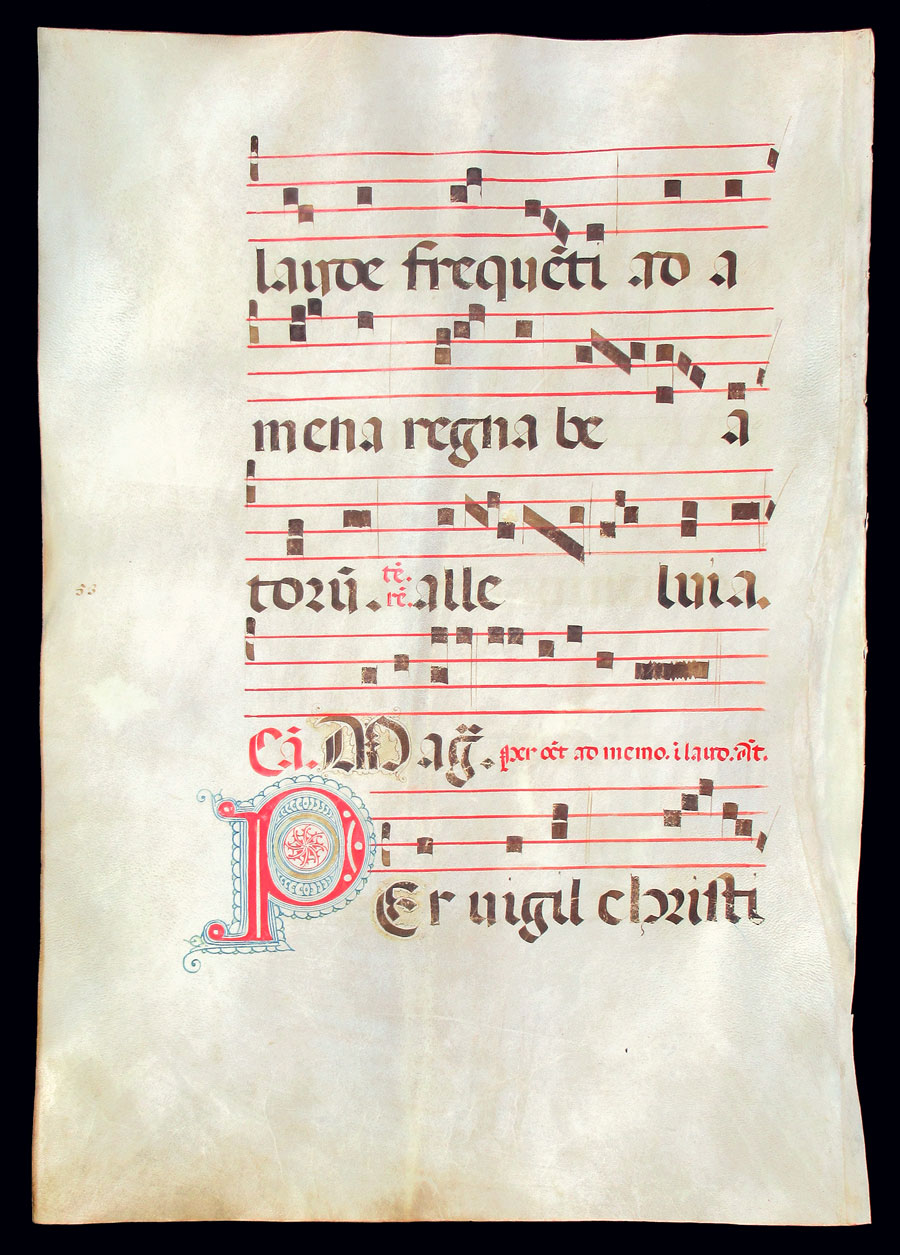 laude frequẽti ad a
mena regna be a
torũ. tẽ. rẽ. alle luia.
Cã. Mag̃. per oct̃ ad memo. ĩ laud. añt.
PEr uigil christi
53